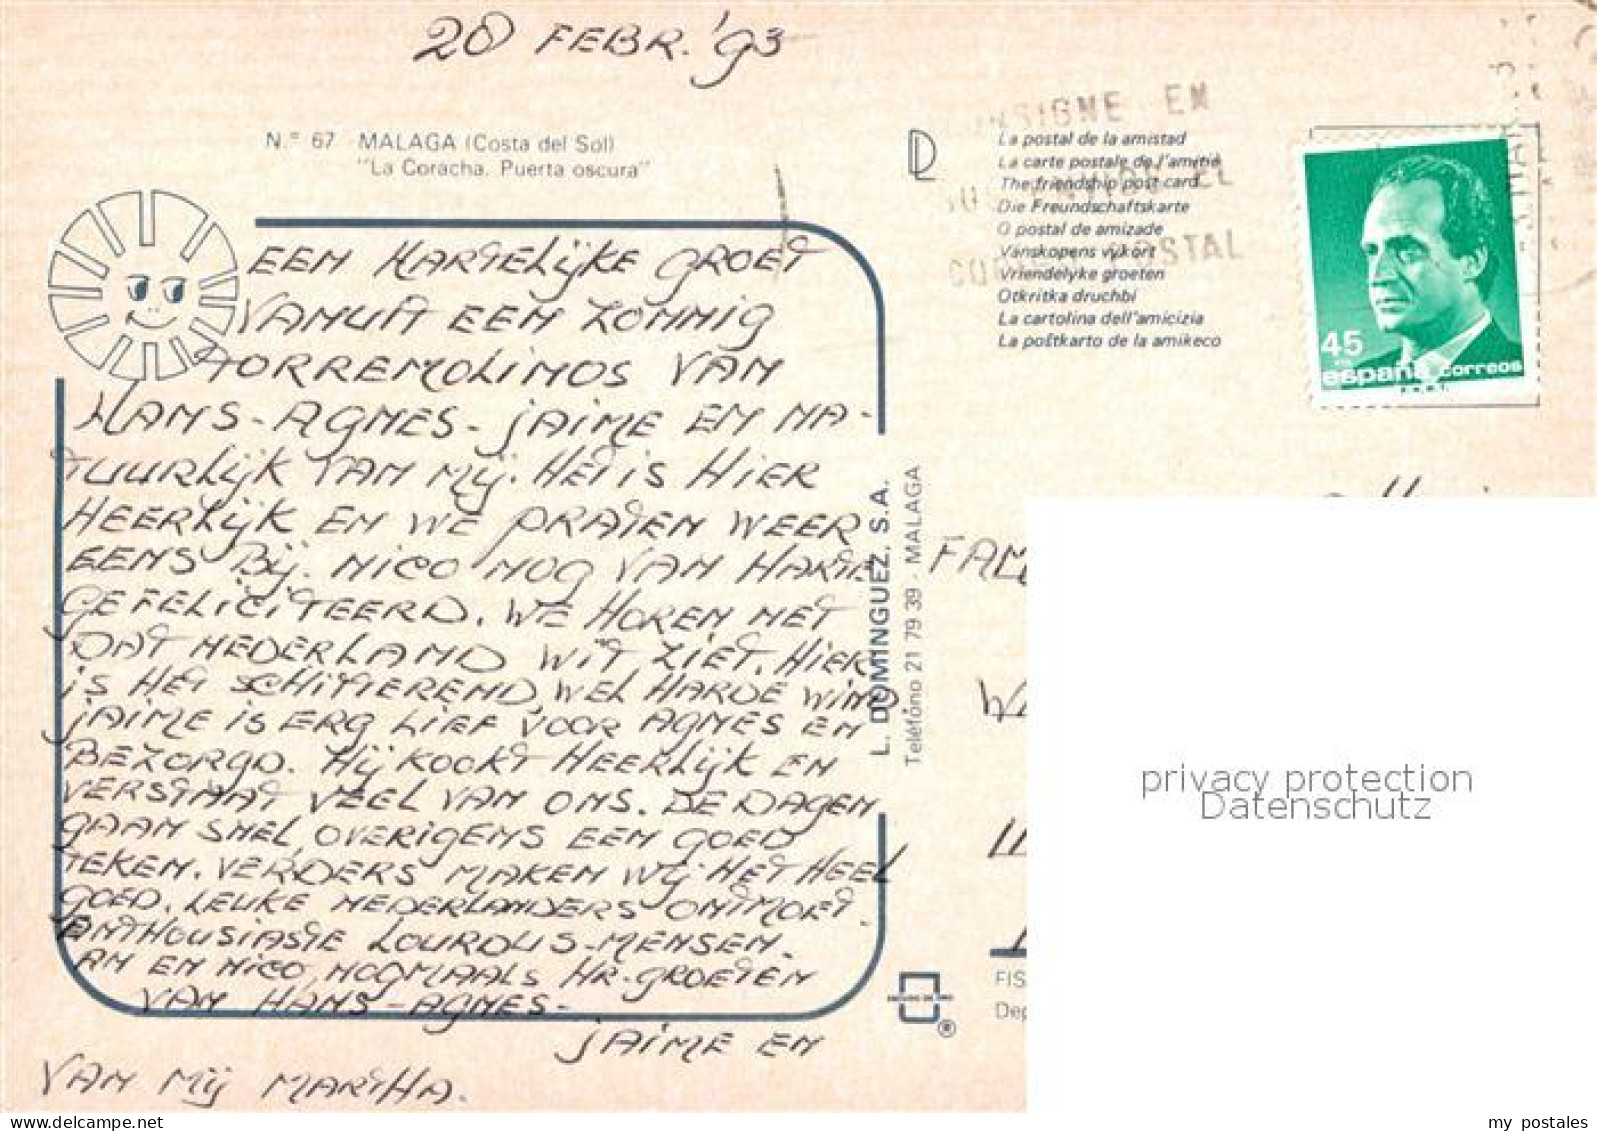 20 FEBR. '93
N.º 67 MALAGA (Costa del Sol)
"La Coracha. Puerta oscura"
EEN HARTELIJKE GROET
VANUIT EEN ZONNIG
TORREMOLINOS VAN
HANS - AGNES - JAIME EN NA-
TUURLIJK VAN MIJ. HET IS HIER
HEERLIJK EN WE PRATEN WEER
EENS BIJ. NICO NOG VAN HARTE
GEFELICITEERD. WE HOREN NET
DAT NEDERLAND WIT ZIET. HIER
IS HET SCHITTEREND, WEL HARDE WIND.
JAIME IS ERG LIEF VOOR AGNES EN
BEZORGD. HIJ KOOKT HEERLIJK EN
VERSTAAT VEEL VAN ONS. DE DAGEN
GAAN SNEL, OVERIGENS EEN GOED
TEKEN. VERDERS MAKEN WIJ HET HEEL
GOED. LEUKE NEDERLANDERS ONTMOET.
ENTHOUSIASTE LOURDUS-MENSEN.
AN EN NICO, NOGMAALS HR. GROETEN
VAN HANS - AGNES -
JAIME EN
VAN MIJ MARTHA.
L. DOMINGUEZ, S.A.
Teléfono 21 79 39 - MALAGA
CONSIGNE EN
POSTAL
La postal de la amistad
La carte postale de l'amitié
The friendship post card
Die Freundschaftskarte
O postal de amizade
Vänskopens vykort
Vriendelyke groeten
Otkritka druchbi
La cartolina dell'amicizia
La poŝtkarto de la amikeco
45
españa correos
FAM
FIS
Dep
®
privacy protection
Datenschutz
my postales